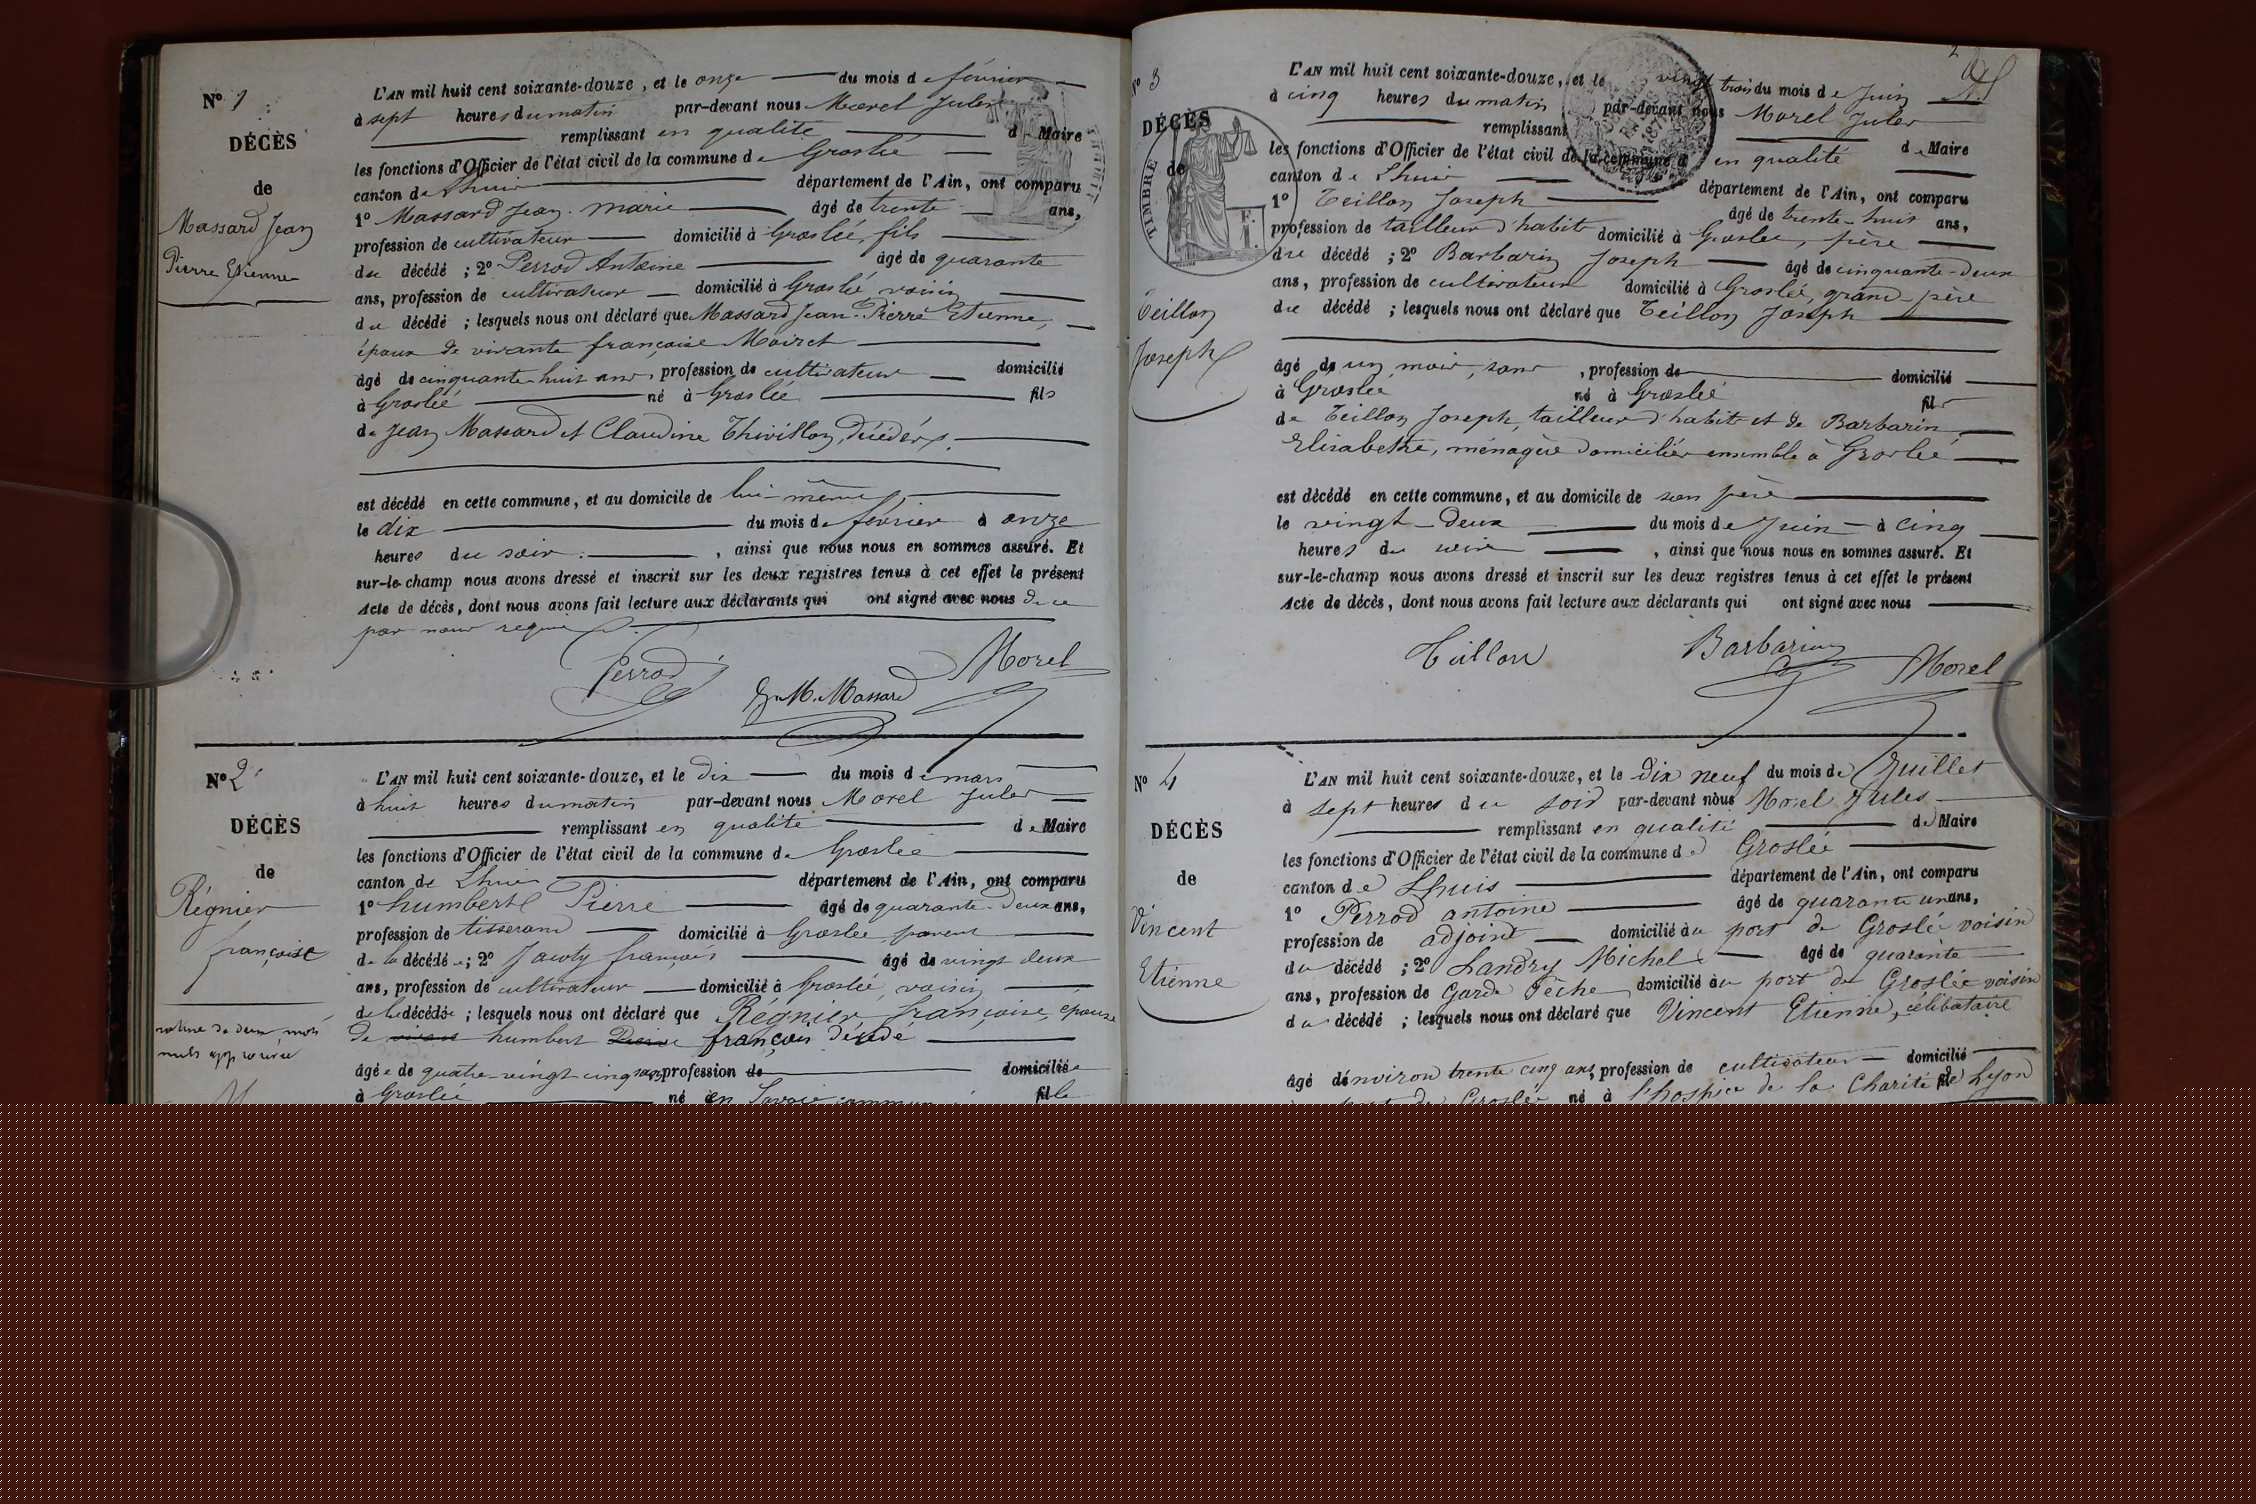 N° 1
DÉCÈS
de
Massard Jean
Pierre Etienne
L'AN mil huit cent soixante-douze, et le onze du mois de février
à sept heures du matin par-devant nous Morel Jules
remplissant en qualité de Maire
les fonctions d'Officier de l'état civil de la commune de Groslée
canton de Lhuis département de l'Ain, ont comparu
1° Massard Jean-marie âgé de trente ans,
profession de cultivateur domicilié à Groslée, fils
du décédé ; 2° Perrod Antoine âgé de quarante
ans, profession de cultivateur domicilié à Groslée voisin
du décédé ; lesquels nous ont déclaré que Massard Jean-Pierre Etienne,
époux de vivante françoise Moiret
âgé de cinquante-huit ans, profession de cultivateur domicilié
à Groslée né à Groslée fils
de Jean Massard et Claudine Thivillon, décédés.
est décédé en cette commune, et au domicile de lui-même,
le dix du mois de février à onze
heures du soir. , ainsi que nous nous en sommes assuré. Et
sur-le-champ nous avons dressé et inscrit sur les deux registres tenus à cet effet le présent
Acte de décès, dont nous avons fait lecture aux déclarants qui ont signé avec nous de ce
par nous requis.
Perrod
J. M. Massard
Morel
N° 2
DÉCÈS
de
Régnier
françoise
rature de deux mots
nuls approuvée
M
L'AN mil huit cent soixante-douze, et le dix du mois de mars
à huit heures du matin par-devant nous Morel Jules
remplissant en qualité de Maire
les fonctions d'Officier de l'état civil de la commune de Groslée
canton de Lhuis département de l'Ain, ont comparu
1° humbert Pierre âgé de quarante-deux ans,
profession de tisserand domicilié à Groslée parent
de la décédée ; 2° Jauty françois âgé de vingt deux
ans, profession de cultivateur domicilié à Groslée, voisin
de la décédée ; lesquels nous ont déclaré que Régnier françoise, épouse
de humbert Pierre françois décédé
âgée de quatre-vingt-cinq ans, profession de domiciliée
à Groslée né en Savoie fille
2
N° 3
DÉCÈS
de
TIMBRE
Teillon
Joseph
L'AN mil huit cent soixante-douze, et le vingt trois du mois de Juin
à cinq heures du matin par-devant nous Morel Jules
remplissant en qualité de Maire
les fonctions d'Officier de l'état civil de la commune d
canton de Lhuis département de l'Ain, ont comparu
1° Teillon Joseph âgé de trente-huit ans,
profession de tailleur d'habit domicilié à Groslée, père
du décédé ; 2° Barbarin Joseph âgé de cinquante-deux
ans, profession de cultivateur domicilié à Groslée, grand-père
du décédé ; lesquels nous ont déclaré que Teillon Joseph
âgé de un mois, sans , profession de domicilié
à Groslée né à Groslée fils
de Teillon Joseph, tailleur d'habit et de Barbarin
Elisabethe, ménagère domiciliés ensemble à Groslée
est décédé en cette commune, et au domicile de son père
le vingt-deux du mois de Juin à cinq
heures du soir , ainsi que nous nous en sommes assuré. Et
sur-le-champ nous avons dressé et inscrit sur les deux registres tenus à cet effet le présent
Acte de décès, dont nous avons fait lecture aux déclarants qui ont signé avec nous
Teillon
Barbarin
Morel
N° 4
DÉCÈS
de
Vincent
Etienne
L'AN mil huit cent soixante-douze, et le dix neuf du mois de Juillet
à sept heures du soir par-devant nous Morel Jules
remplissant en qualité de Maire
les fonctions d'Officier de l'état civil de la commune de Groslée
canton de Lhuis département de l'Ain, ont comparu
1° Perrod antoine âgé de quarante un ans,
profession de adjoint domicilié au port de Groslée voisin
du décédé ; 2° Landry Michel âgé de quarante
ans, profession de Garde Pêche domicilié au port de Groslée voisin
du décédé ; lesquels nous ont déclaré que Vincent Etienne, célibataire
âgé d'environ trente cinq ans, profession de cultivateur domicilié
port de Groslée né à l'hospice de la Charité de Lyon